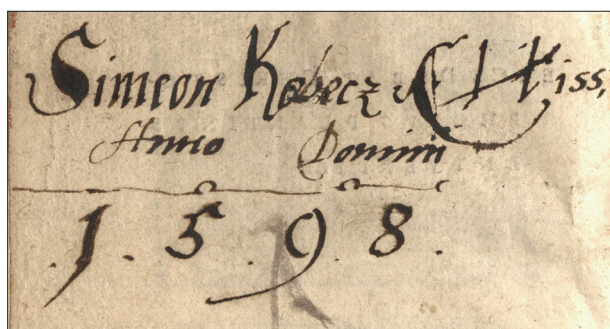 Simeon Kabecz
Anno Domini
.1.5.9.8.